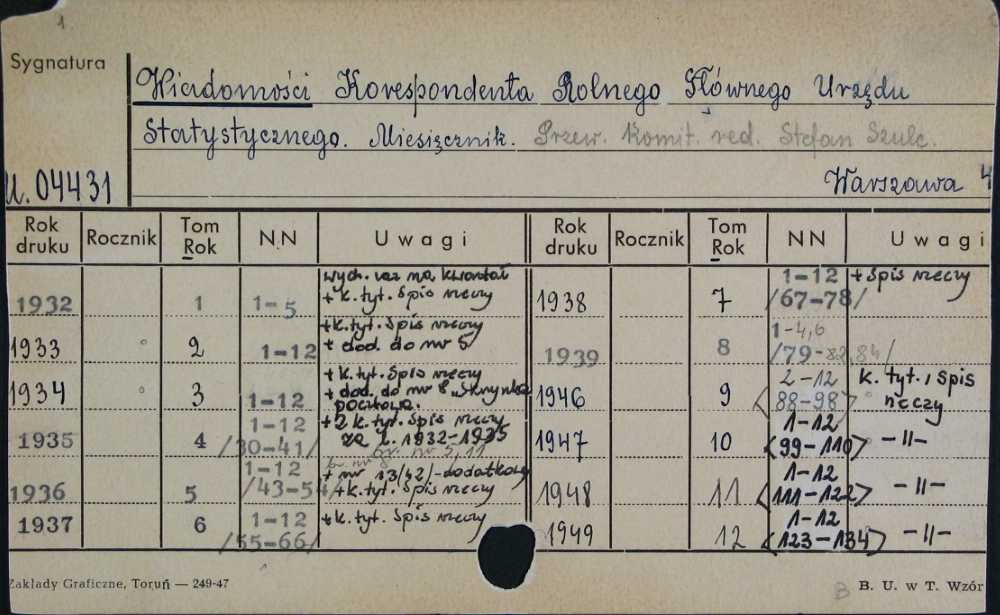 1.
Sygnatura
Wiadomości Korespondenta Rolnego Głównego Urzędu
Statystycznego. Miesięcznik. Przew. Komit. red. Stefan Szulc.
U. 04431 Warszawa 4
Rok druku Rocznik Tom Rok NN Uwagi Rok druku Rocznik Tom Rok NN Uwagi
1932 1 1-5 wych. raz na kwartał + k. tyt. spis rzeczy
1933 2 1-12 + k. tyt. spis rzeczy + dod. do nr 5
1934 3 1-12 + k. tyt. spis rzeczy + dod. do nr 8 „Skrzynka pocztowa.
1935 4 1-12 /30-41/ + 2 k. tyt. spis rzeczy za l. 1932-1935 br. nr 5, 11
1936 5 1-12 /43-54/ br. nr + nr 13/42/-dodatkowy + k. tyt. spis rzeczy
1937 6 1-12 /55-66/ + k. tyt. spis rzeczy
1938 7 1-12 /67-78/ + spis rzeczy
1939 8 1-4,6 /79-82,84/
1946 9 2-12 <88-98> k. tyt. i spis rzeczy
1947 10 1-12 <99-110> -||-
1948 11 1-12 <111-122> -||-
1949 12 1-12 <123-134> -||-
Zakłady Graficzne, Toruń — 249-47 B B. U. w T. Wzór